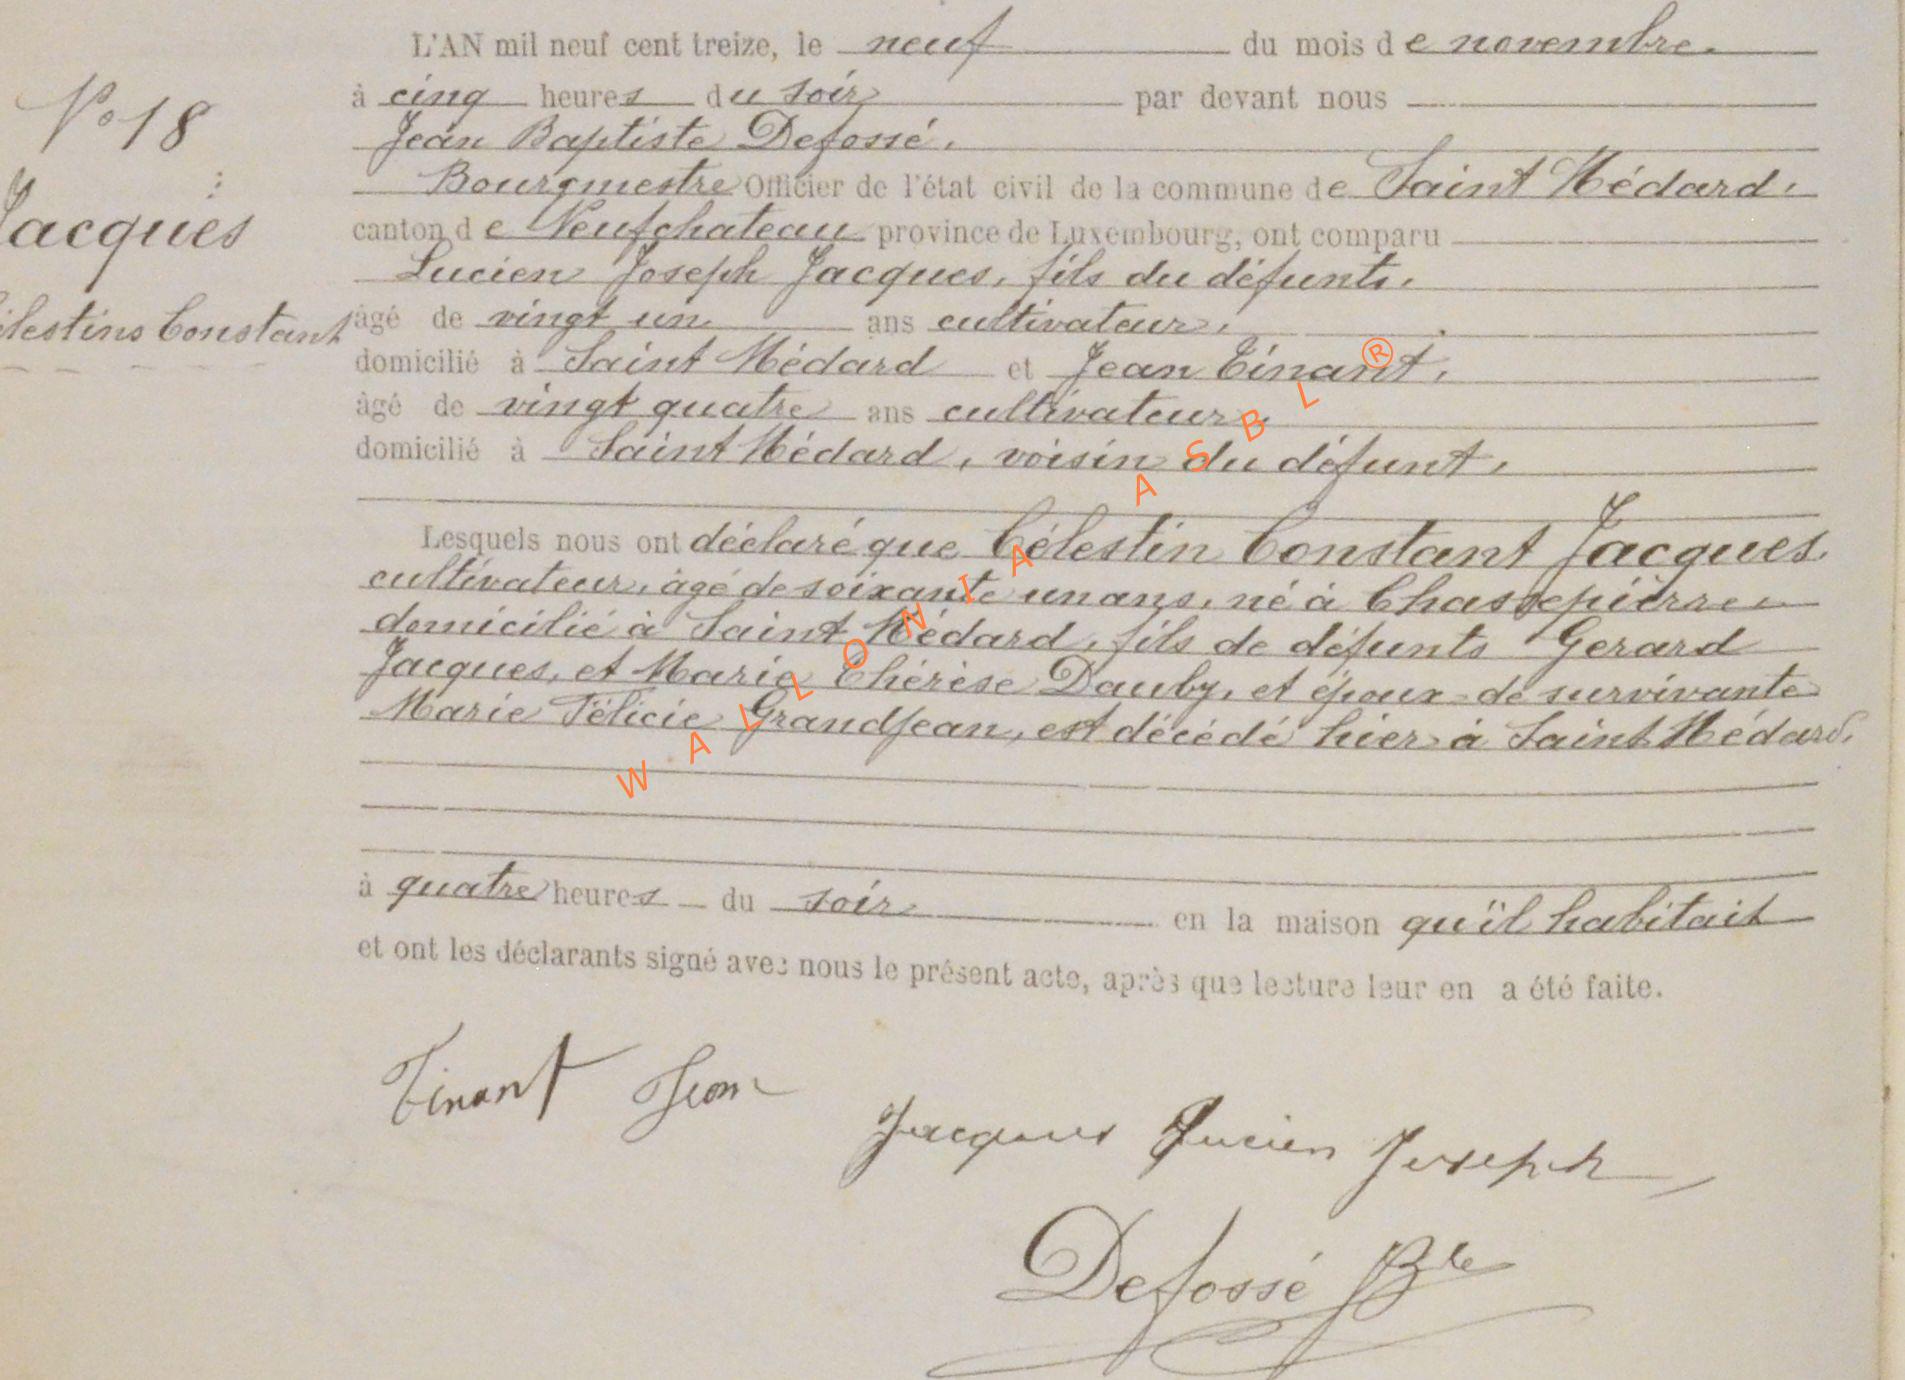 L'AN mil neuf cent treize, le neuf du mois de novembre.
à cinq heures du soir par devant nous
Jean Baptiste Defossé.
Bourgmestre Officier de l'état civil de la commune de Saint Médard.
canton de Neufchateau province de Luxembourg, ont comparu
Lucien Joseph Jacques, fils du défunts.
âgé de vingt un ans cultivateur.
domicilié à Saint Médard et Jean Tinant.
âgé de vingt quatre ans cultivateur.
domicilié à Saint Médard, voisin du défunt.
N° 18
Jacques
Célestins Constant
Lesquels nous ont déclaré que Célestin Constant Jacques.
cultivateur, âgé de soixante un ans, né à Chassepierre
domicilié à Saint Médard, fils de défunts Gerard
Jacques, et Marie Thérèse Dauby, et époux de survivante
Marie Félicie Grandjean, est décédé hier à Saint Médard.
à quatre heures du soir en la maison qu'il habitait
et ont les déclarants signé avec nous le présent acte, après que lecture leur en a été faite.
Tinant Jean
Jacques Lucien Joseph
Defossé Bte
WALLONIA ASBL®